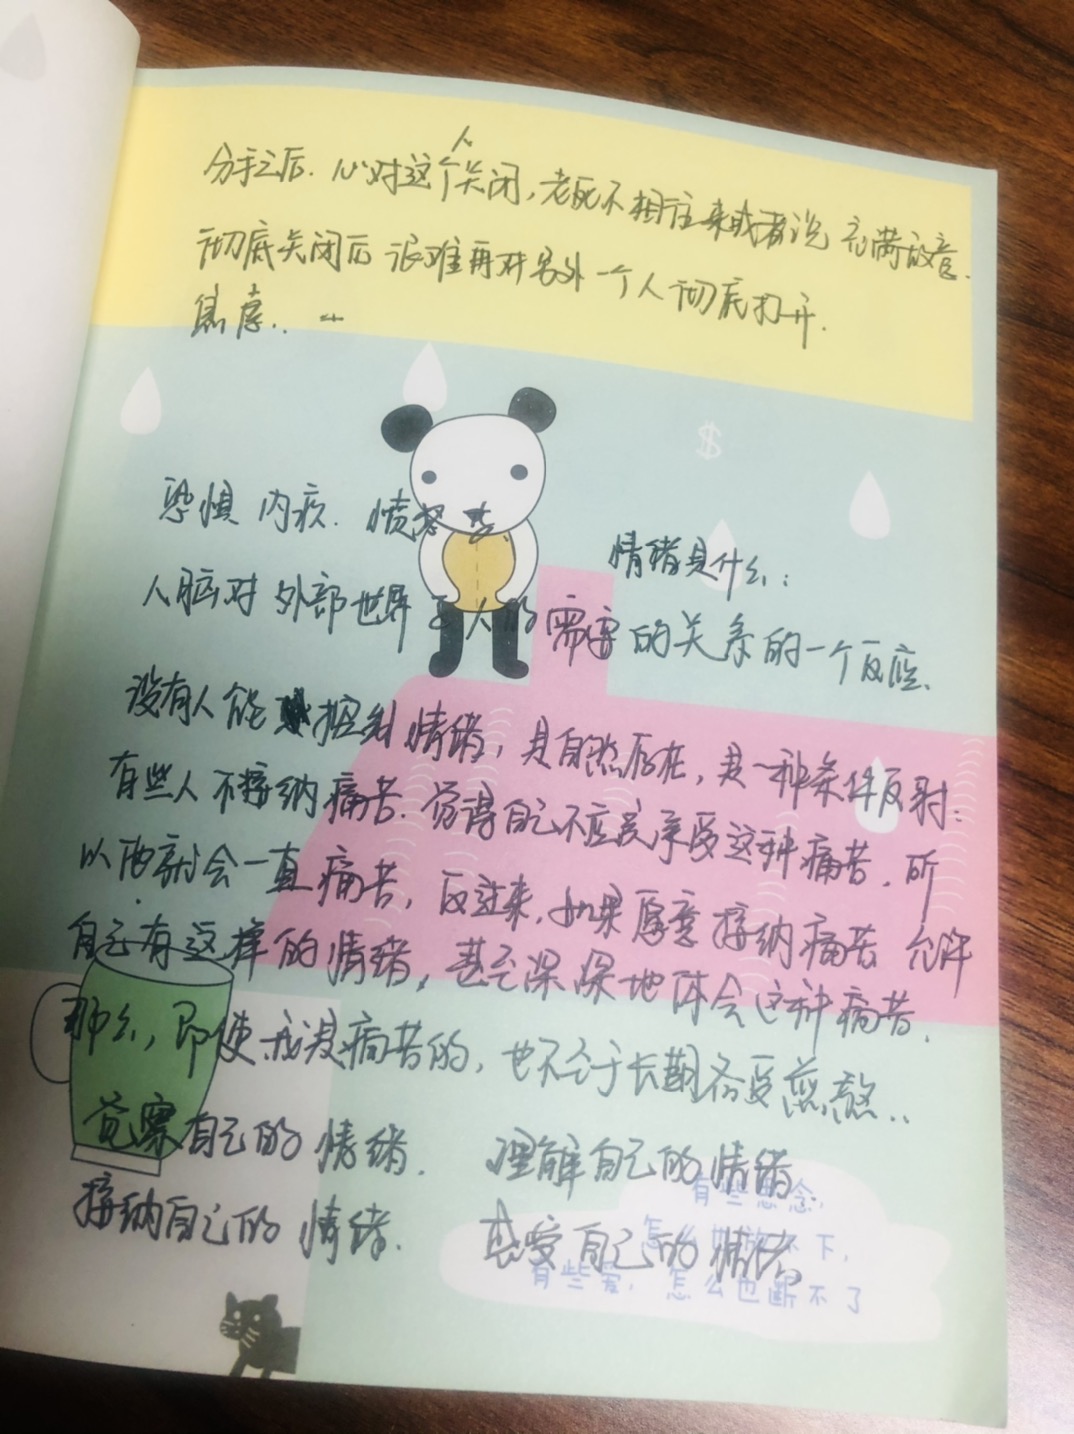 分手之后.心对这个人关闭,老死不相往来或者说 充满敌意.
彻底关闭后 很难再对另外一个人彻底打开.
焦虑..
恐惧 内疚. 愤怒
情绪是什么:
人脑对 外部世界 与人的需要的关系的一个反应.
没有人能控制情绪,是自然存在,是一种条件反射.
有些人不接纳痛苦.觉得自己不应该承受这种痛苦.所
以他就会一直痛苦,反过来.如果愿意接纳痛苦 允许
自己有这样的情绪,甚至深深地体会这种痛苦.
那么,即使我是痛苦的,也不至于长期备受煎熬..
觉察自己的情绪. 理解自己的情绪.
接纳自己的情绪. 感受自己的情绪.
有些思念,
怎么也放不下,
有些爱,怎么也断不了
$